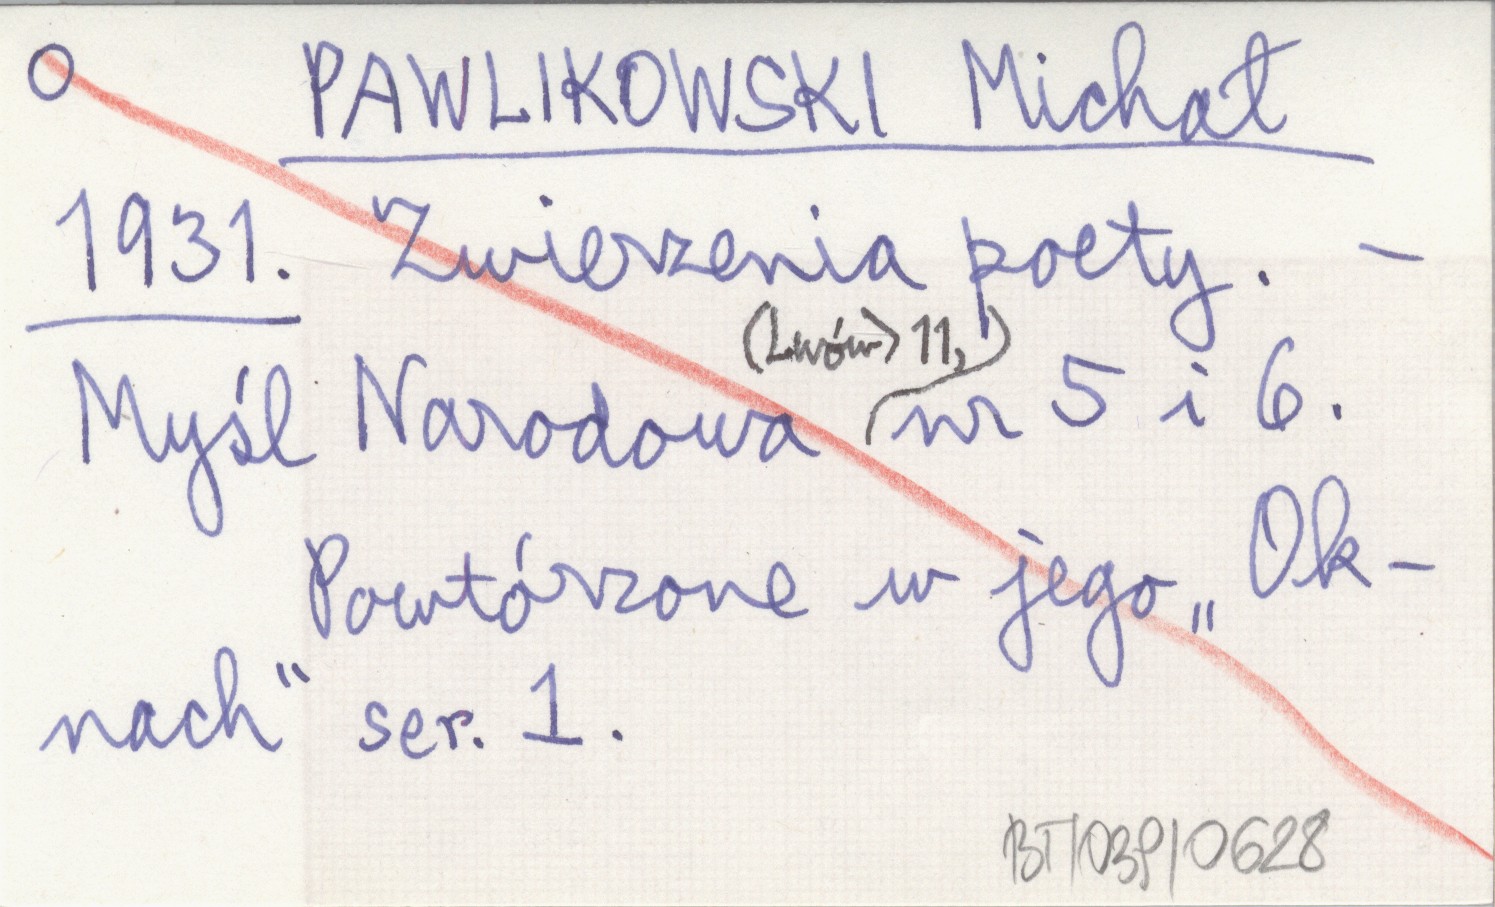 O PAWLIKOWSKI Michał
1931. Zwierzenia poety. –
(Lwów) 11,
Myśl Narodowa nr 5 i 6.
Powtórzone w jego „Ok-
nach" ser. 1.
BT/039/0628